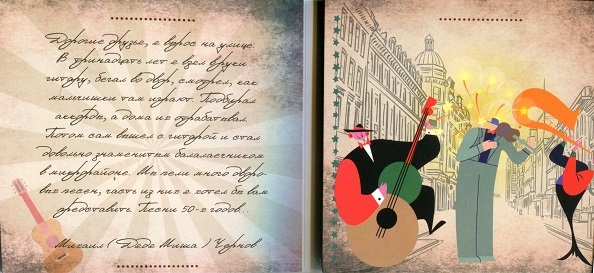 Дорогие друзья, я вырос на улице.
В тринадцать лет я взял в руки
гитару, бегал во двор, смотрел, как
мальчишки там играют. Подбирал
аккорды, а дома их отрабатывал.
Потом сам вышел с гитарой и стал
довольно знаменитым балалаечником
в микрорайоне. Мы пели много дворо-
вых песен, часть из них я хотел бы вам
представить. Песни 50-х годов...
Михаил (Дядя Миша) Чернов